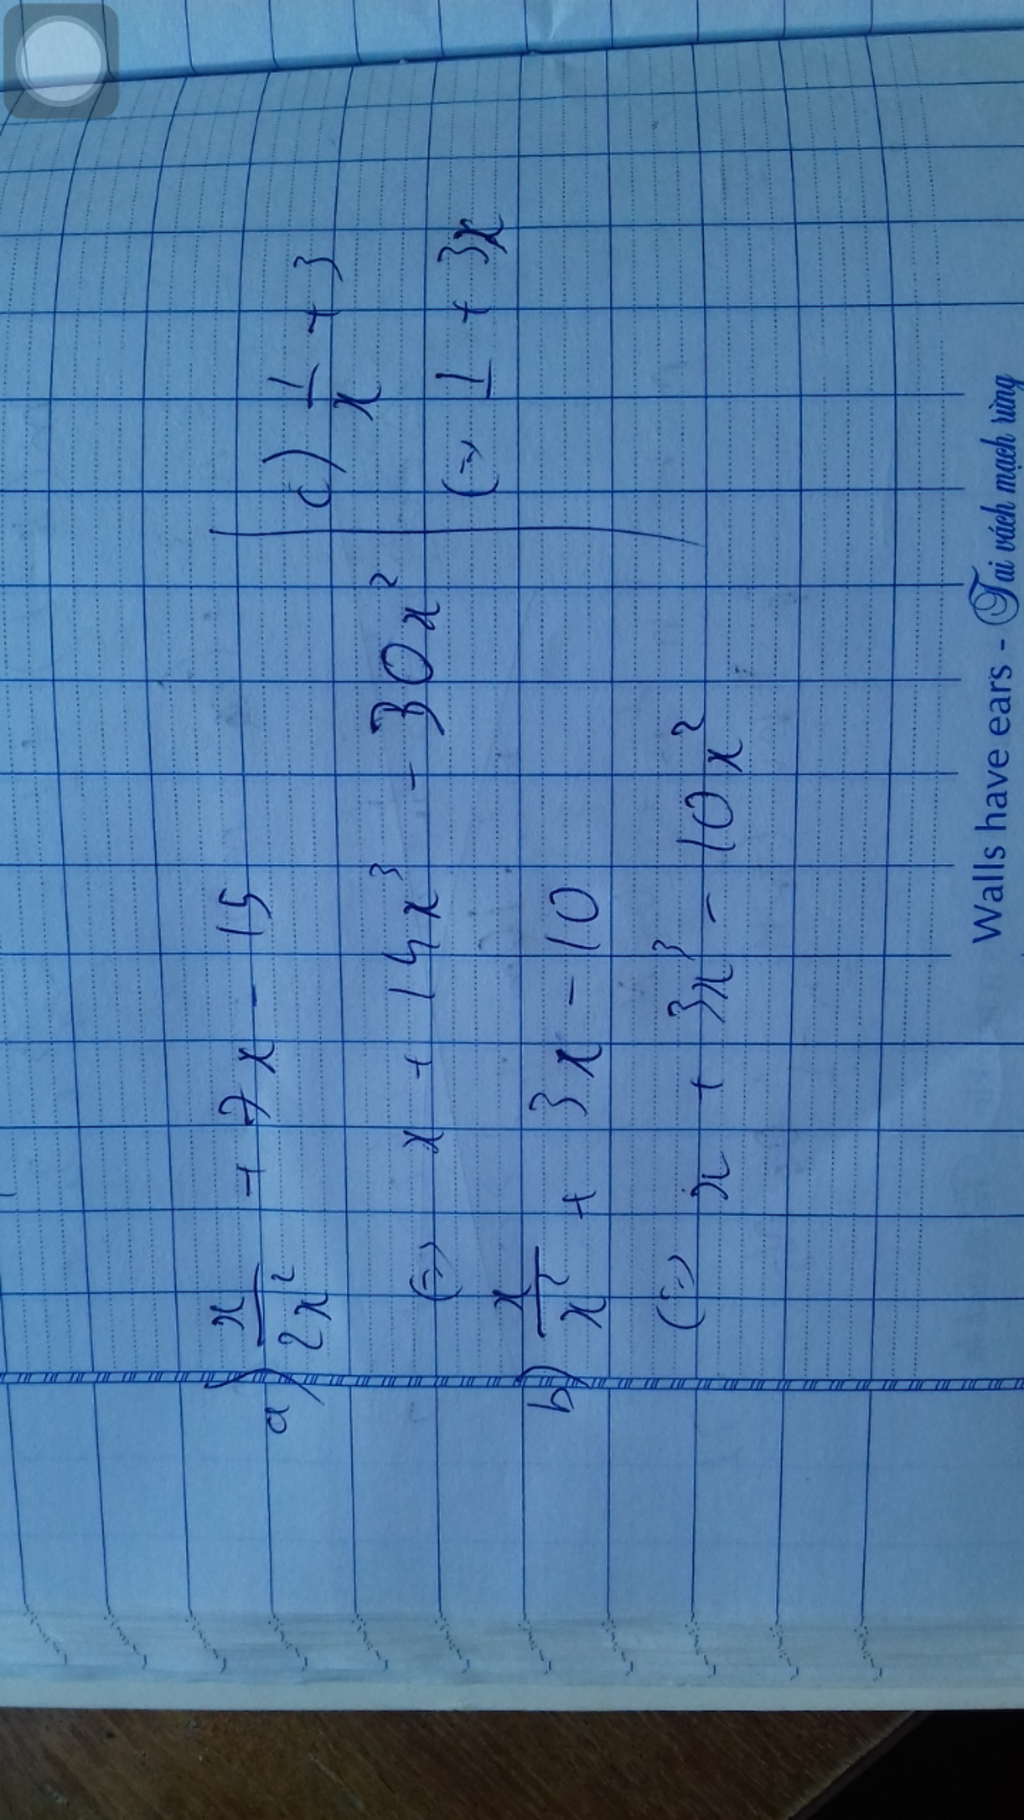 a) x/2x² + 7x - 15
(=) x + 14x³ - 30x²
b) x/x² + 3x - 10
(=) x + 3x³ - 10x²
c) 1/x + 3
(=) 1 + 3x
Walls have ears - Tai vách mạch rừng